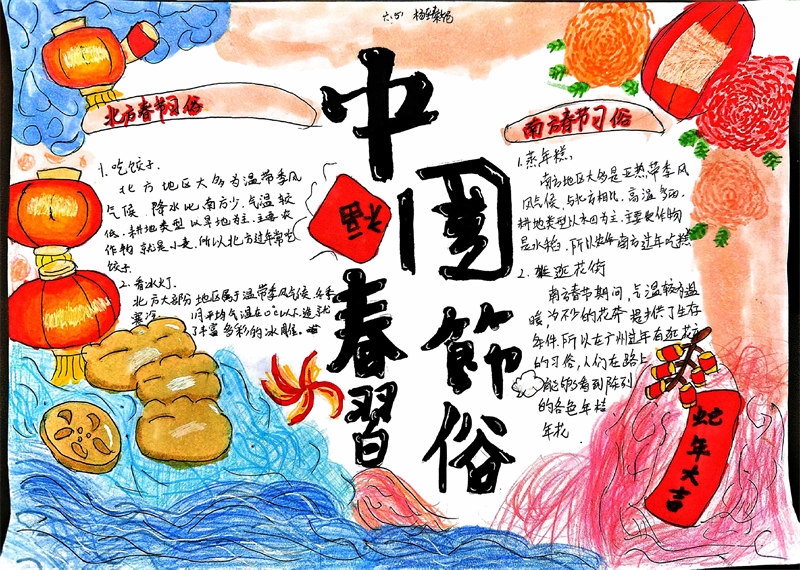 六(5) 杨
中国
春節
習俗
福
北方春节习俗
1. 吃饺子.
北方地区大多为温带季风
气候，降水比南方少，气温较
低，耕地类型以旱地为主，主要农
作物就是小麦，所以北方过年常吃
饺子.
2. 看冰灯.
北方大部分地区属于温带季风气候，冬季
寒冷，1月平均气温在0°以下，造就
了丰富多彩的冰雕。
南方春节习俗
1. 蒸年糕.
南方地区大多是亚热带季风
气候，与北方相比，高温多雨，
耕地类型以水田为主，主要农作物
是水稻，所以南方过年吃年糕
2. 逛花街
南方春节期间，气温较为温
暖，为不少的花卉提供了生存
条件，所以在广州过年有逛花市
的习俗，人们在路上
能够看到陈列
的各色年桔
年花
蛇年大吉